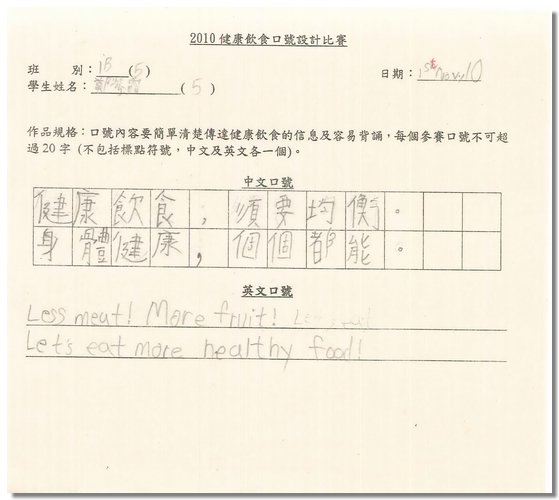 2010 健康飲食口號設計比賽
班 別：1B (5)
日期：1st Nov,10
學生姓名： ( 5 )
作品規格：口號內容要簡單清楚傳達健康飲食的信息及容易背誦，每個參賽口號不可超
過20字 (不包括標點符號，中文及英文各一個)。
中文口號
健康飲食，須要均衡。
身體健康，個個都能。
英文口號
Less meat! More fruit!
Let's eat more healthy food!